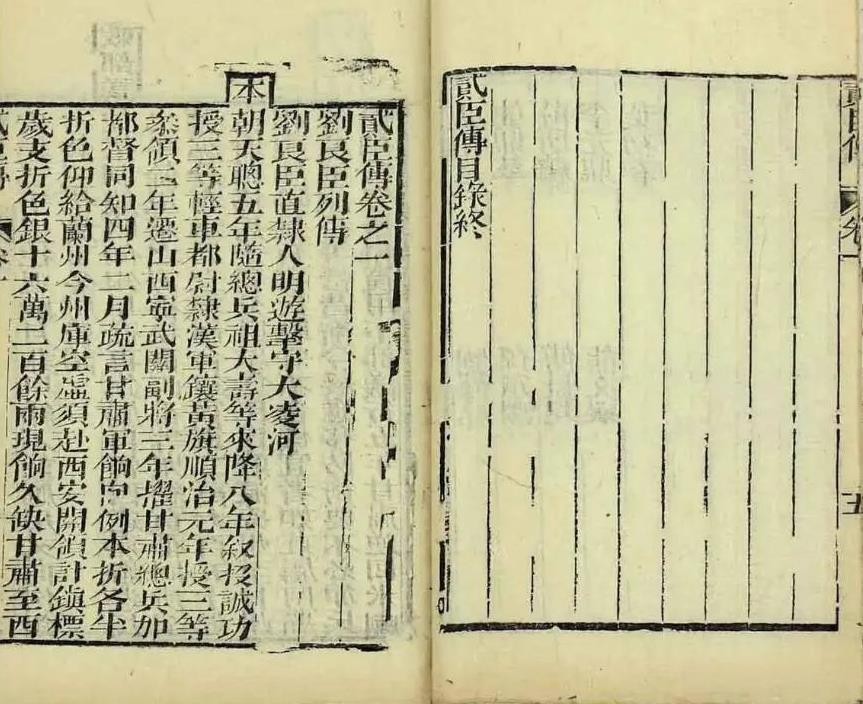 貳臣傳 卷一 五
貳臣傳目錄終
貳臣傳卷之一
劉良臣列傳
劉良臣直隸人明遊擊守大凌河
本朝天聰五年隨總兵祖大壽等來降八年叙投誠功
授三等輕車都尉隸漢軍鑲黃旗順治元年授三等
叅領二年遷山西寧武關副將三年擢甘肅總兵加
都督同知四年二月疏言甘肅軍餉向例本折各半
折色仰給蘭州今州庫空虛須赴西安開領計鎮標
歲支折色銀十六萬二百餘兩現餉久缺甘肅至西
貳臣傳 卷一